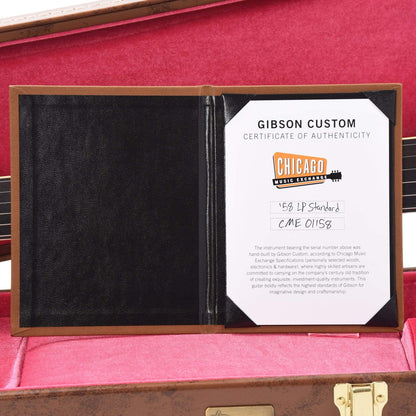 GIBSON CUSTOM
CERTIFICATE OF AUTHENTICITY
CHICAGO
MUSIC EXCHANGE
'58 LP Standard
CME 01158
The instrument bearing the serial number above was
hand-built by Gibson Custom, according to Chicago Music
Exchange Specifications (personally selected woods,
electronics & hardware), where highly skilled artisans are
committed to carrying on the company's century old tradition
of creating exquisite, investment-quality instruments. This
guitar boldly reflects the highest standards of Gibson for
imaginative design and craftsmanship.